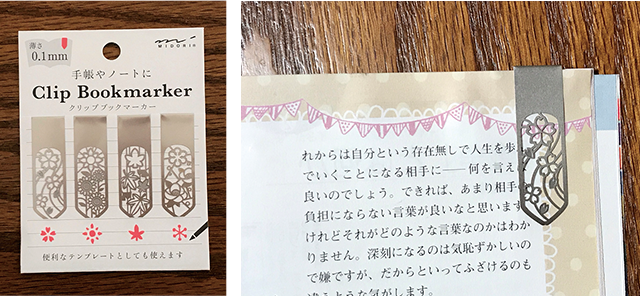 薄さ
0.1mm
MIDORI
手帳やノートに
Clip Bookmarker
クリップブックマーカー
便利なテンプレートとしても使えます
れからは自分という存在無しで人生を歩
でいくことになる相手に——何を言え
良いのでしょう。できれば、あまり相手
負担にならない言葉が良いなと思います
けれどそれがどのような言葉なのかはわか
りません。深刻になるのは気恥ずかしいの
で嫌ですが、だからといってふざけるのも
違うような気がします。